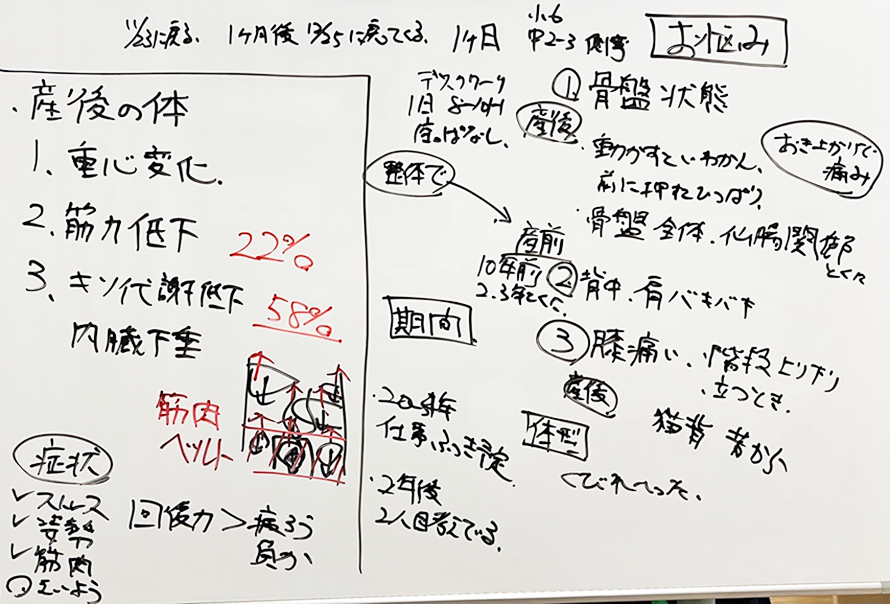 11/23に戻る. 1ヶ月後 12/25に戻ってくる. 1ヶ日
小6
中2-3 側弯
お悩み
・産後の体
1、重心変化.
2、筋力低下 22%
3、キソ代謝低下 58%
内臓下垂
筋肉
ベルト
症状
✓ストレス
✓姿勢
✓筋肉
回復力 > 疲ろう
負か
デスクワーク
1日 8-10H
座りぱなし.
整体で
① 骨盤 状態
産後
・動かすといわかん.
前に押すひっぱり.
おき上がりで
痛み
・骨盤 全体. 仙腸関節部
とくに
産前
10年前
2.3年とくに
② 背中. 肩 バキバキ
③ 膝痛い. 階段上り下り
・立つとき.
産後
期間
仕事ふっき予定.
・2年後
2人目考えている.
体型
猫背 昔から
くびれへった.